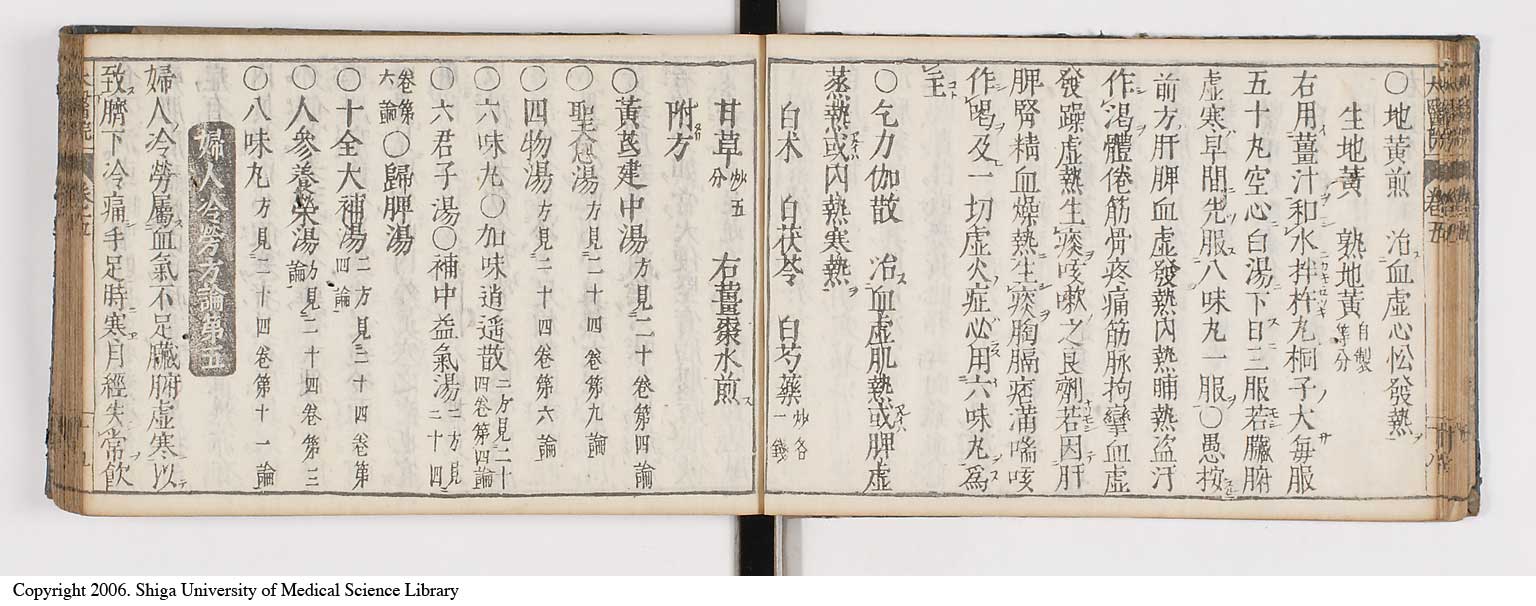 〇地黄煎　治血虛心忪發熱
生地黄　熟地黄自製等分
右用薑汁和水拌杵丸桐子大每服
五十丸空心白湯下日三服若臟腑
虛寒早間先服八味丸一服〇愚按
前方肝脾血虛發熱內熱晡熱盜汗
作渴體倦筋骨疼痛筋脉拘攣血虛
發躁虛熱生痰咳嗽之良劑若因肝
脾腎精血燥熱生痰胸膈痞滿喘咳
作渴及一切虛火症必用六味丸爲
主
〇乞力伽散　治血虛肌熱或脾虛
蒸熱或內熱寒熱
白术　白茯苓　白芍藥炒各一錢
甘草炒五分　右薑棗水煎
附方
〇黄芪建中湯方見二十卷第四論
〇聖愈湯方見二十四卷第九論
〇四物湯方見二十四卷第六論
〇六味丸〇加味逍遥散二方見二十四卷第四論
〇六君子湯〇補中益氣湯二方見二十四
卷第六論〇歸脾湯
〇十全大補湯二方見二十四卷第四論
〇人參養榮湯方見二十四卷第三論
〇八味丸方見二十四卷第十一論
婦人冷勞方論第五
婦人冷勞屬血氣不足臟腑虛寒以
致臍下冷痛手足時寒月經失常飲
Copyright 2006. Shiga University of Medical Science Library